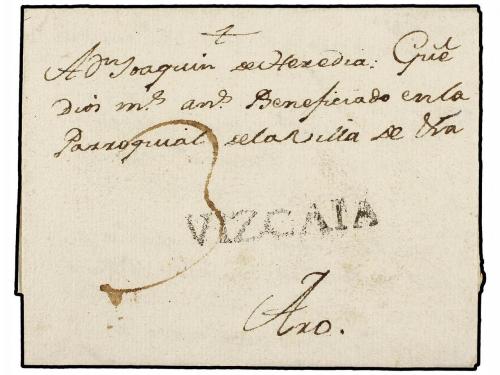 +
A Dn Joaquin de Heredia: Qué
Dios ms ans Beneficiado en la
Parroquial de la Villa de
3
VIZCAIA
Aro.